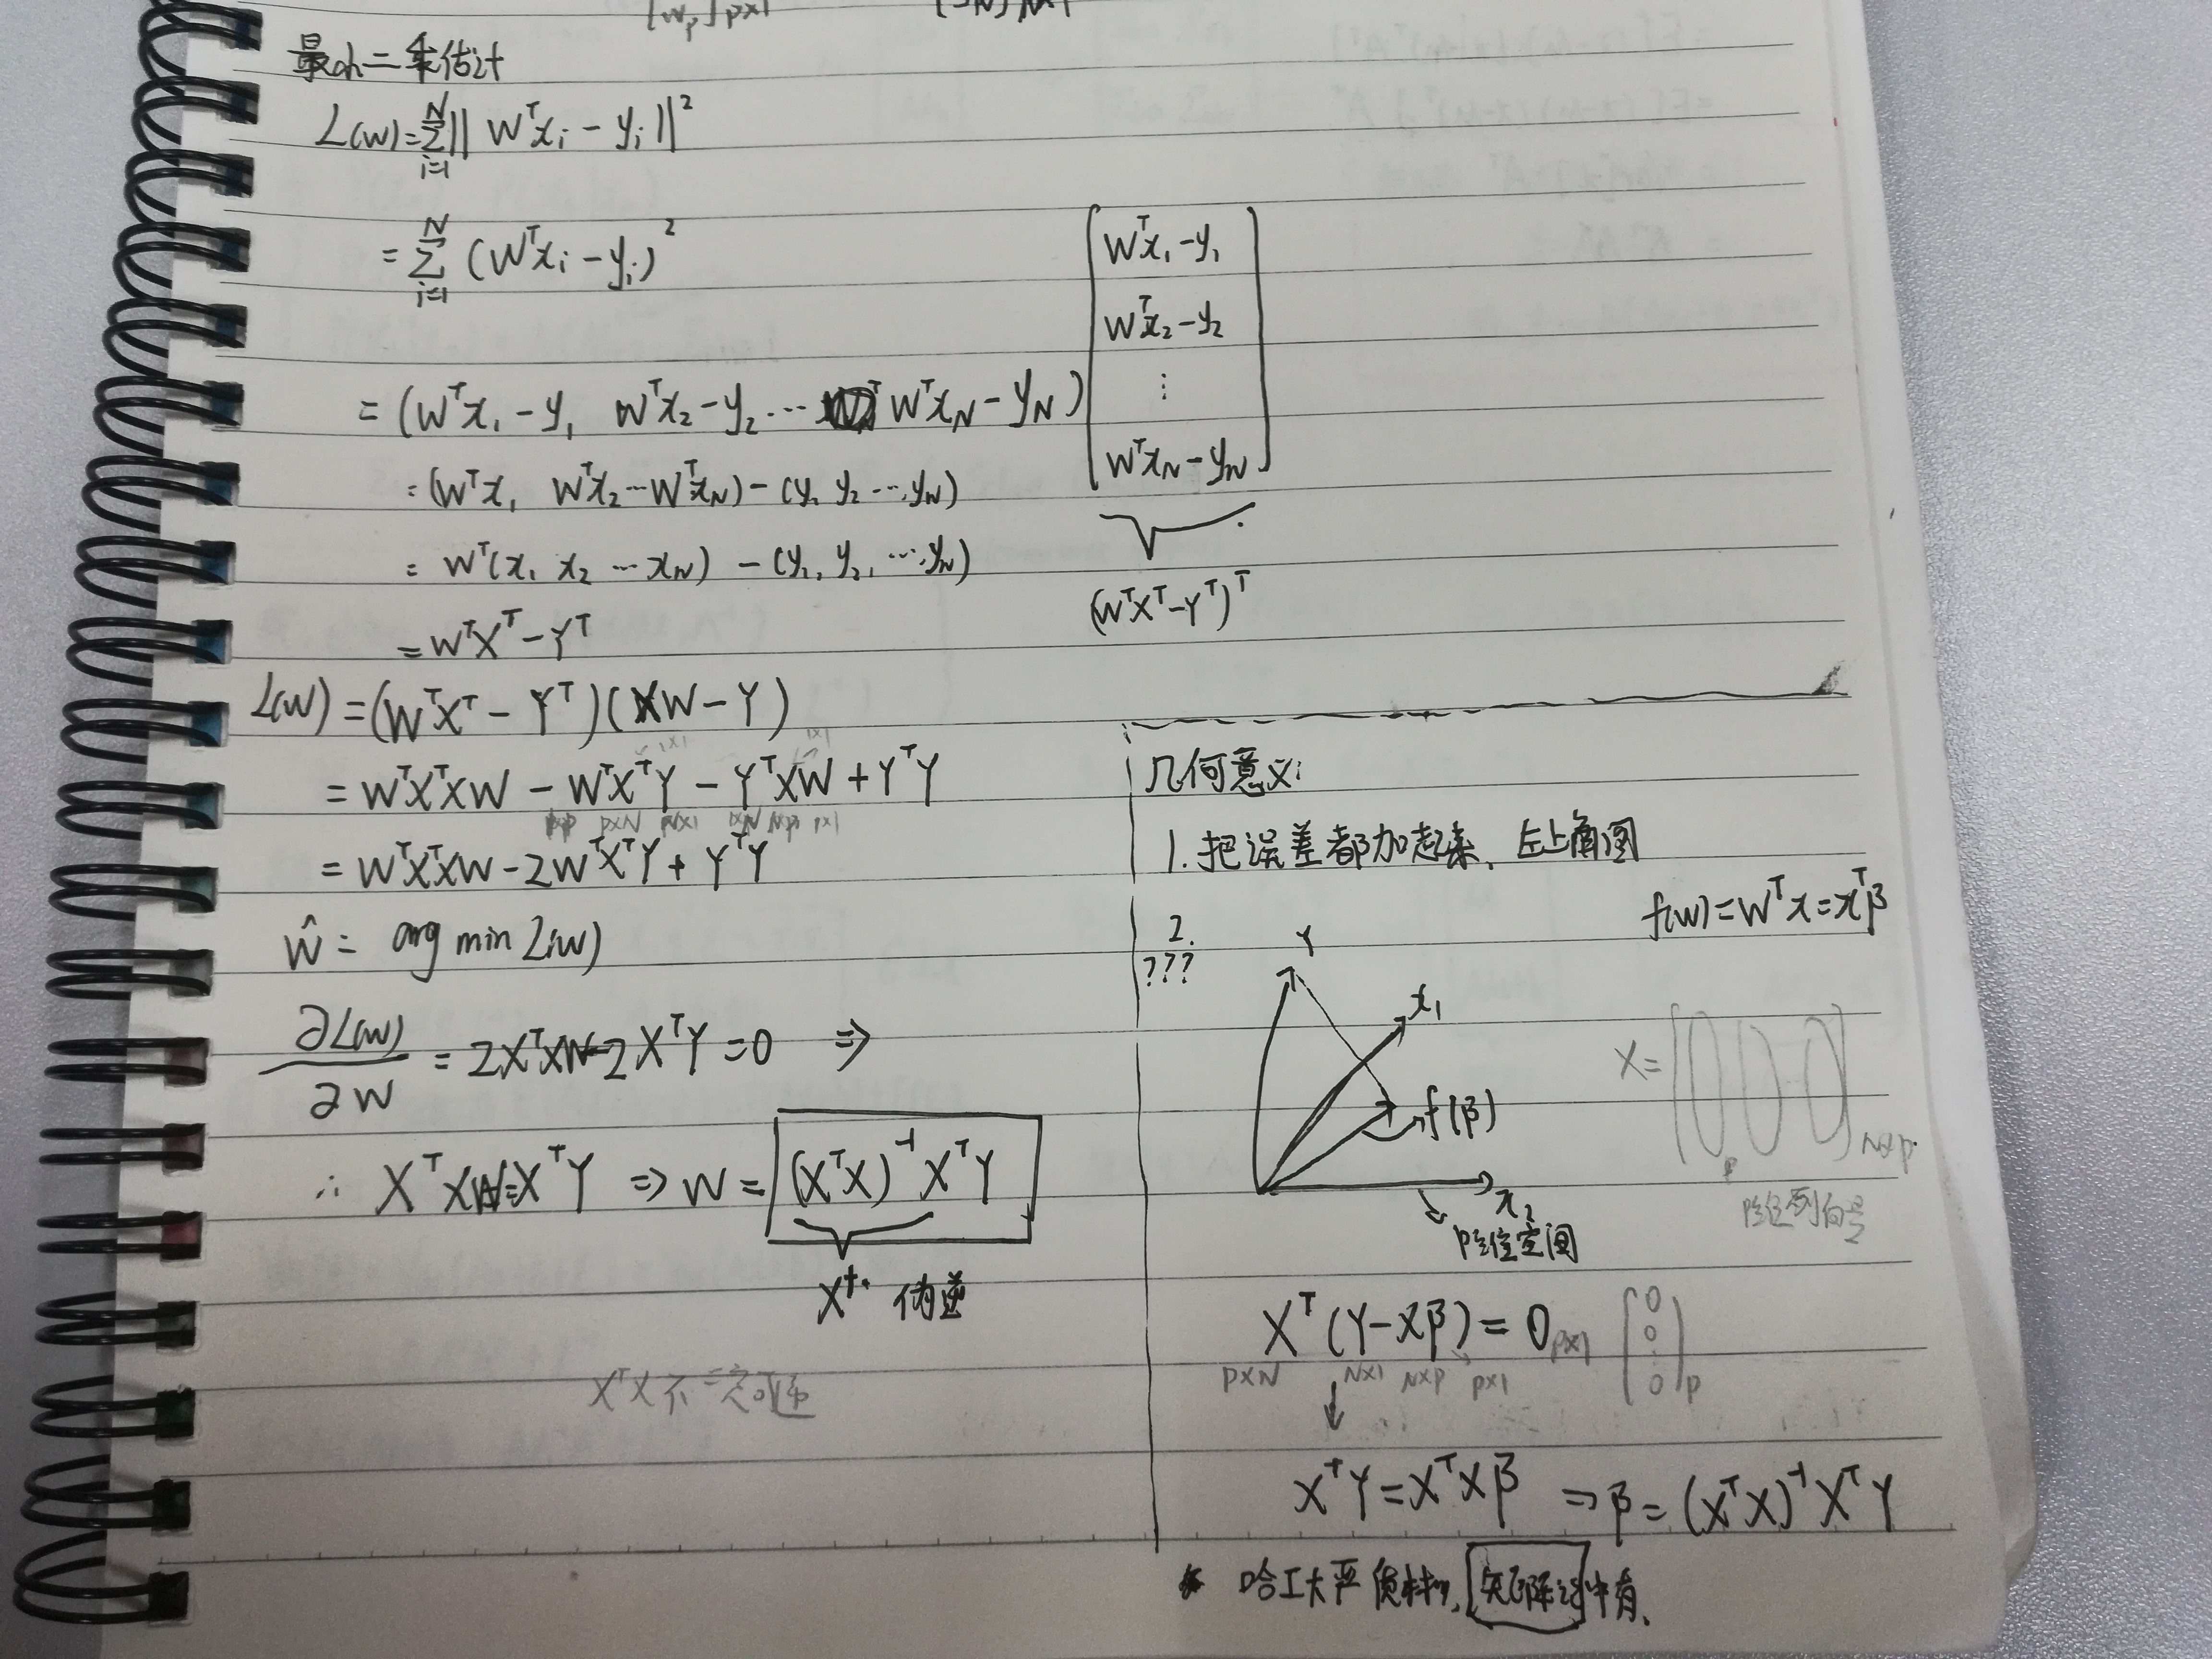 最小二乘估计
L(w)=∑_{i=1}^{N}‖W^T x_i − y_i‖²
=∑_{i=1}^{N} (W^T x_i − y_i)²
=(W^T x_1 − y_1  W^T x_2 − y_2 … W^T x_N − y_N) [W^T x_1 − y_1
W^T x_2 − y_2
⋮
W^T x_N − y_N]
=(W^T x_1  W^T x_2 … W^T x_N) − (y_1 y_2 …, y_N)
= W^T(x_1 x_2 … x_N) − (y_1, y_2, …, y_N)
(W^T X^T − Y^T)^T
= W^T X^T − Y^T
L(w) = (W^T X^T − Y^T)(XW − Y)
= W^T X^T XW − W^T X^T Y − Y^T XW + Y^T Y
p×N 1×N N×p p×1
= W^T X^T XW − 2W^T X^T Y + Y^T Y
Ŵ = arg min L(w)
∂L(w)/∂W = 2X^T XW − 2X^T Y = 0 ⇒
∴ X^T XW = X^T Y ⇒ W = (X^T X)^{-1} X^T Y
X^+ 伪逆
X^T X不一定可逆
几何意义:
1. 把误差都加起来、左上角图
f(w) = W^T x = x^T β
2.
???
Y
x_1
f(β)
x_2
p维空间
X = [ ]_{N×p}
p
X^T (Y − Xβ) = 0_{p×1} [0
0
⋮
0]_p
p×N N×1 N×p p×1
↓
X^T Y = X^T X β ⇒ β = (X^T X)^{-1} X^T Y
哈工大严 矩阵论中有.